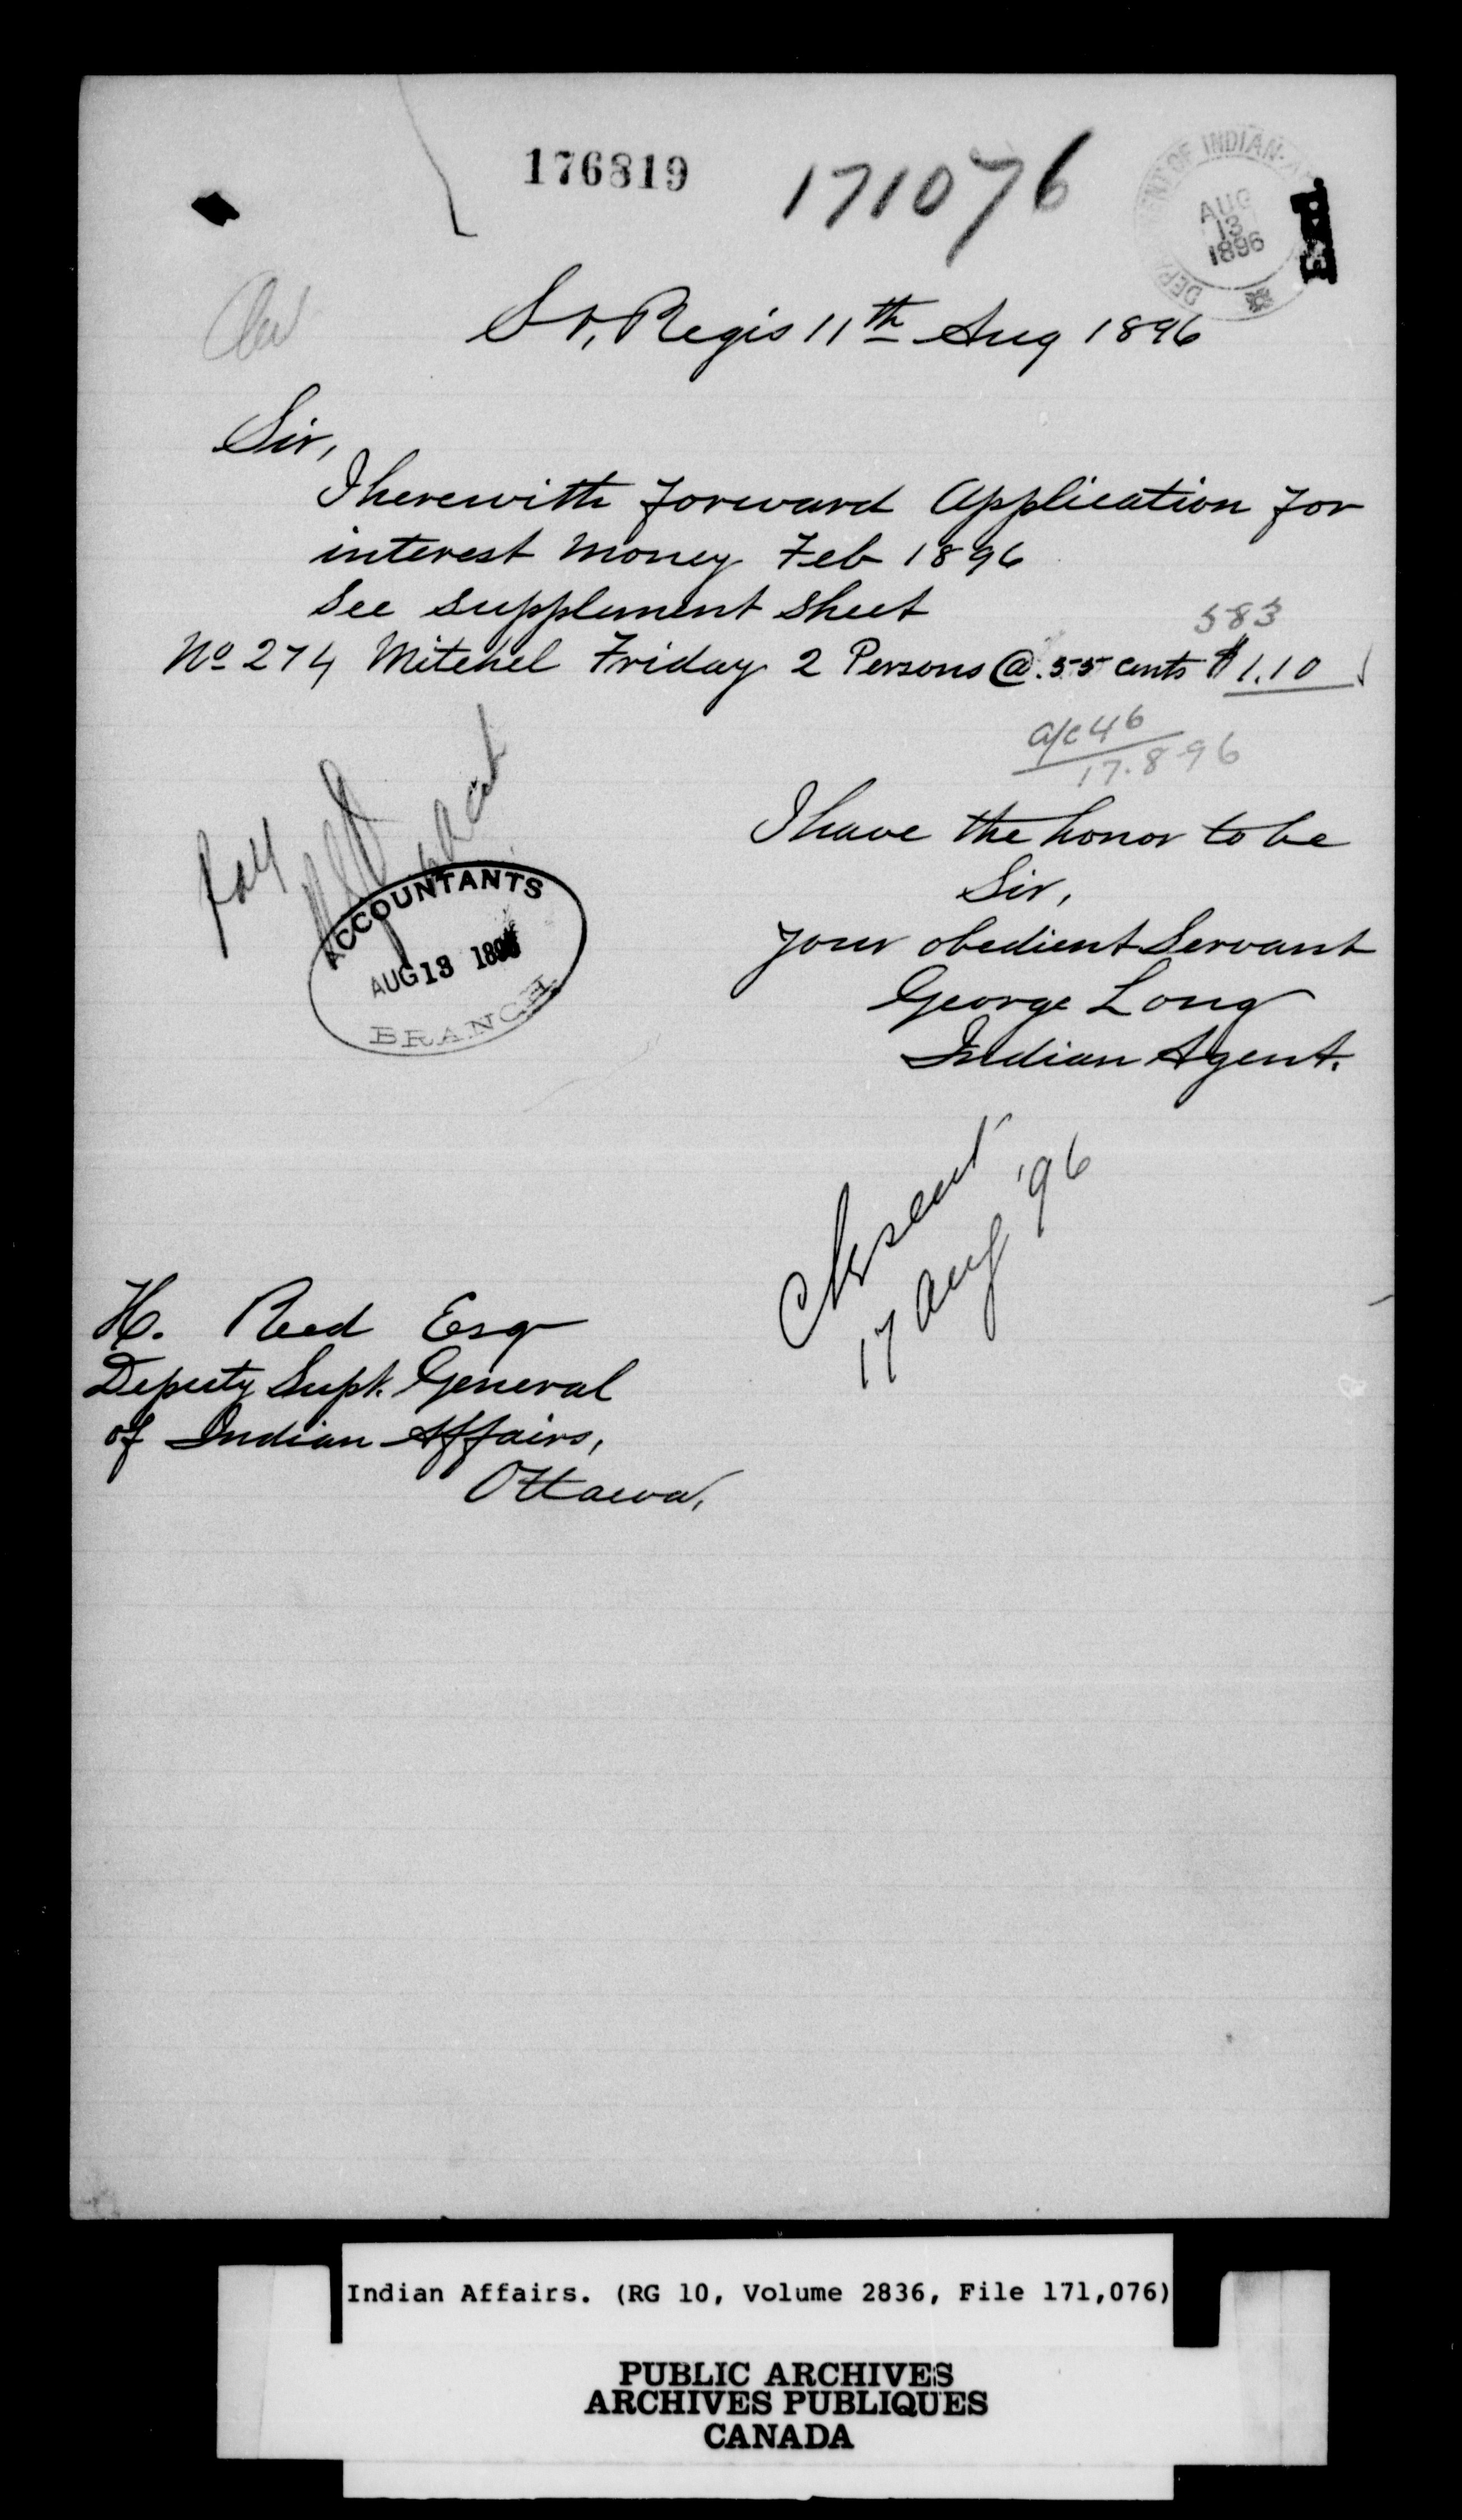 176819
171076
DEPARTMENT OF INDIAN A
AUG
13
1896
St, Regis 11th Aug 1896
Sir,
I herewith forward Application for
interest money Feb 1896
See supplement sheet
583
No 274 Mitchel Friday 2 Persons @ .55 cents $1.10
a/c 46
17.8.96
I have the honor to be
Sir,
your obedient Servant
George Long
Indian Agent.
Pay
ACCOUNTANTS
AUG 13 1896
BRANCH.
Ch sent
17 Aug '96
H. Reed Esq
Deputy Supt. General
of Indian Affairs,
Ottawa,
Indian Affairs. (RG 10, Volume 2836, File 171,076)
PUBLIC ARCHIVES
ARCHIVES PUBLIQUES
CANADA